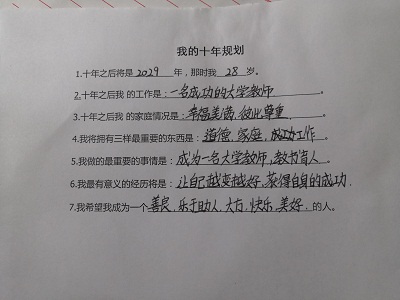 我的十年规划
1.十年之后将是 2029 年，那时我 28 岁。
2.十年之后我 的工作是：一名成功的大学教师。
3.十年之后我 的家庭情况是：幸福美满，彼此尊重。
4.我将拥有三样最重要的东西是：道德、家庭、成功工作。
5.我做的最重要的事情是：成为一名大学教师，教书育人。
6.我最有意义的经历将是：让自己越变越好，获得自身的成功.
7.我希望我成为一个善良.乐于助人.大方.快乐.美好.的人。